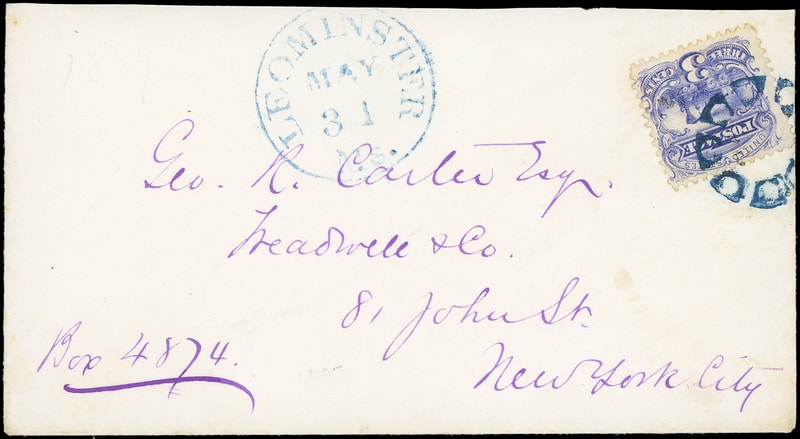 LEOMINSTER
MAY
31
MS.
3
THREE CENTS
UNITED STATES
POSTAGE
Geo. R. Carter Esqr.
Treadwell & Co.
81 John St.
New York City
Box 4874.